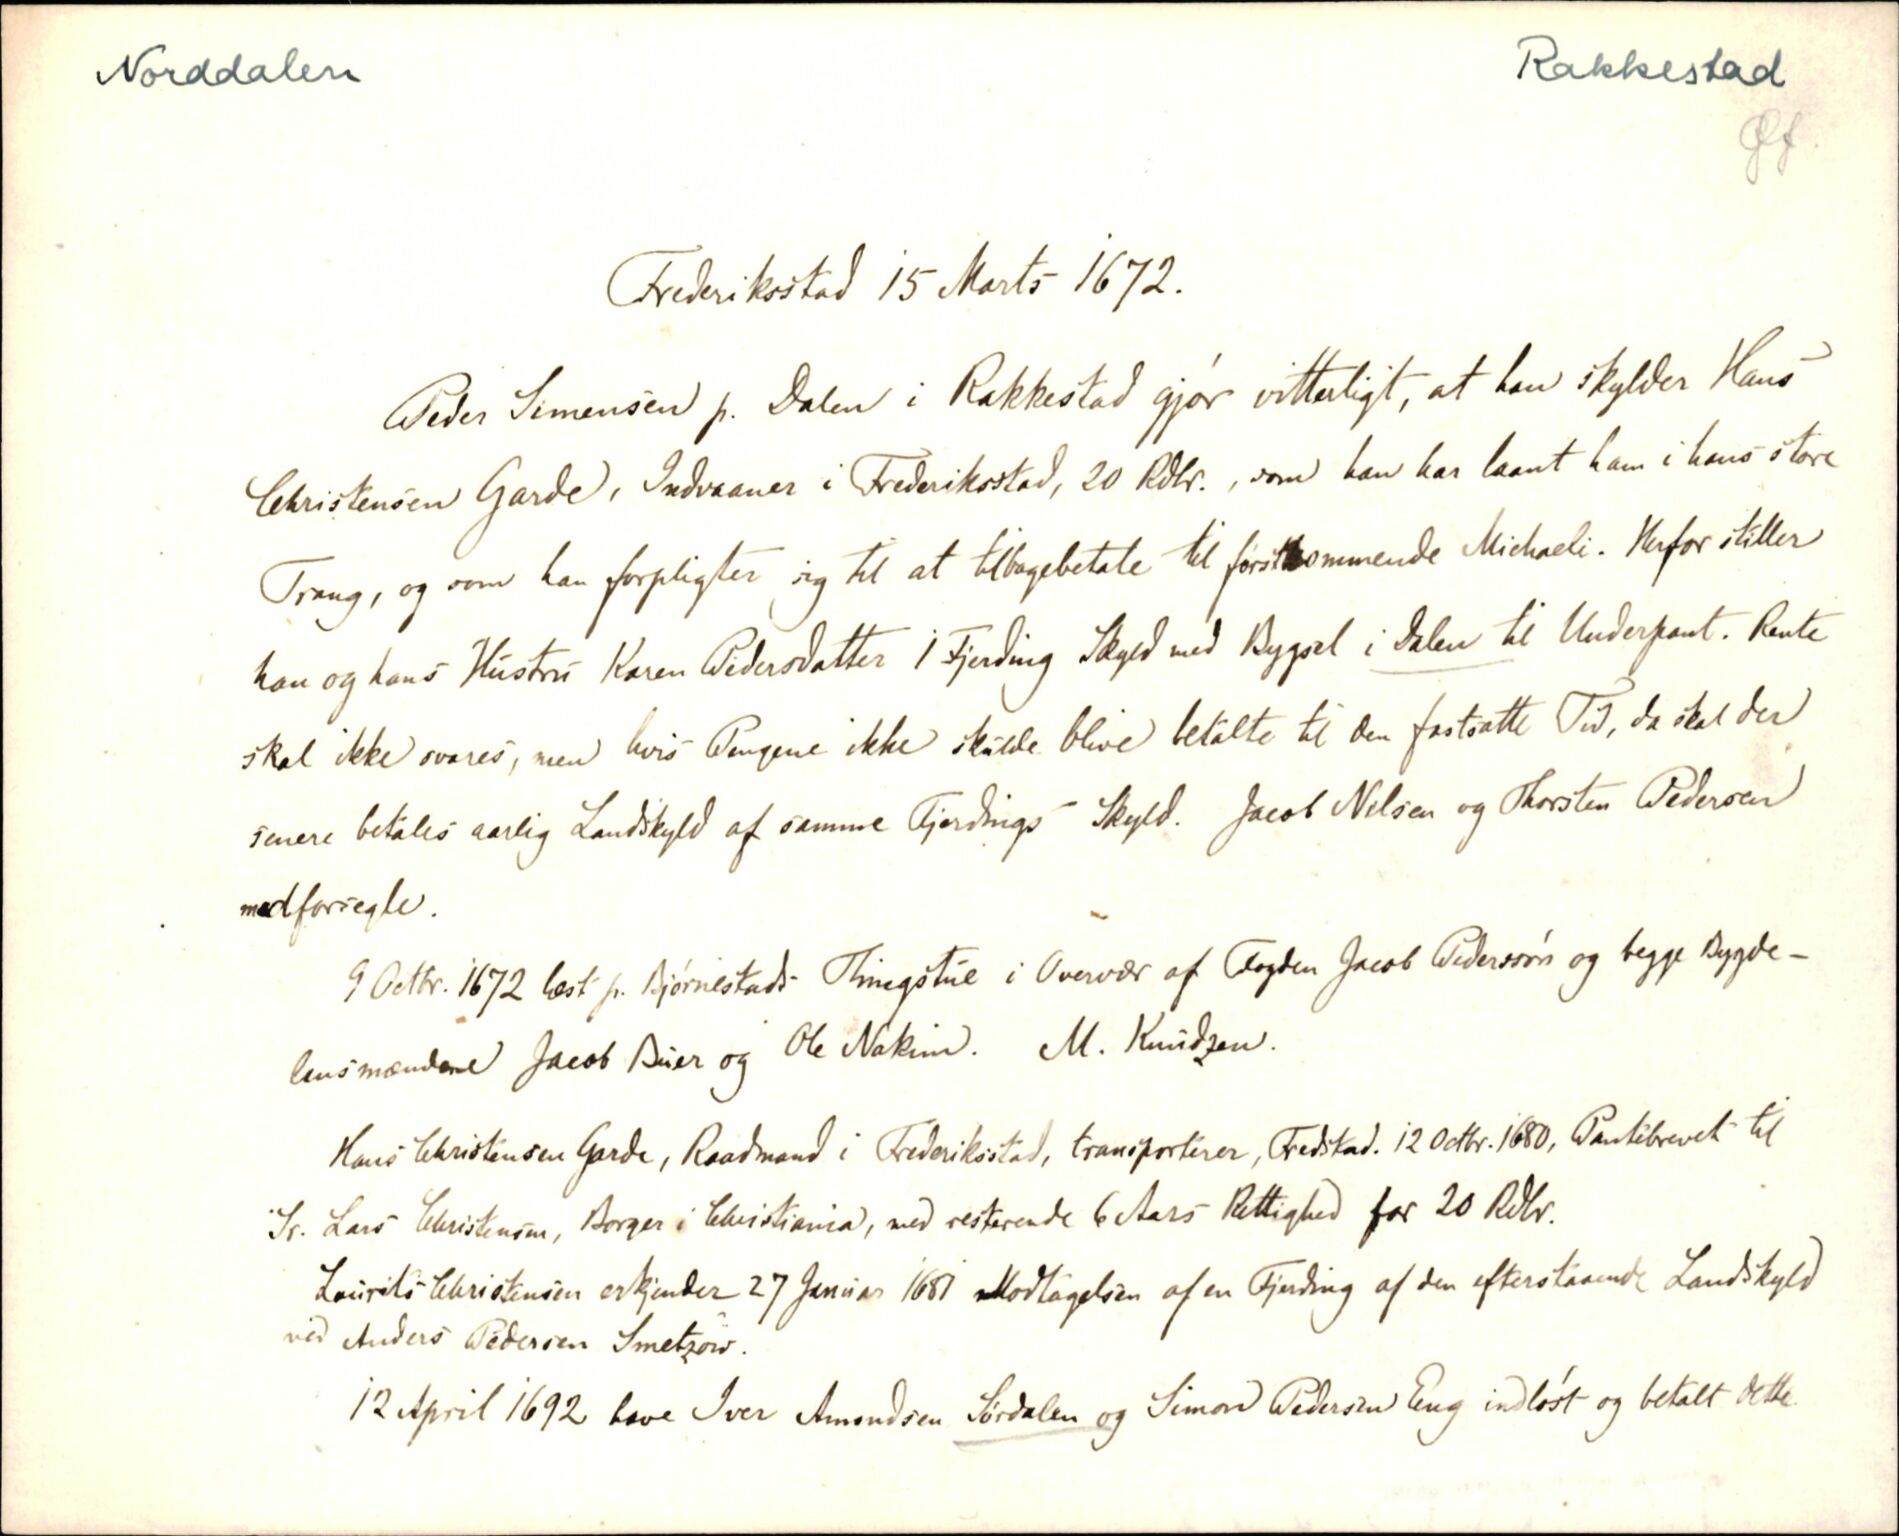 Norddalen
Rakkestad
Øf.
Frederiksstad 15 Marts 1672.
Peder Simensen p. Dalen i Rakkestad gjør vitterligt, at han skylder Hans
Christensen Garde, Indvaaner i Frederiksstad, 20 Rdlr., som han har laant ham i hans store
Trang, og som han forpligter sig til at tilbagebetale til førstkommende Michaeli. Herfor stiller
han og hans Hustru Karen Pedersdatter 1 Fjerding Skyld med Bygsel i Dalen til Underpant. Rente
skal ikke svares, men hvis Pengene ikke skulde blive betalte til den fastsatte Tid, da skal der
senere betales aarlig Landskyld af samme Fjerdings Skyld. Jacob Nilsen og Thorsten Pedersen
medforsegle.
9 Octbr. 1672 læst p. Bjørnestads Thingstue i Overvær af Fogden Jacob Pederssøn og begge Bygde-
lensmændene Jacob Buer og Ole Nakim. M. Knudzen.
Hans Christensen Garde, Raadmand i Frederiksstad, transporterer, Fredstad. 12 Octbr. 1680, Pantebrevet til
Sr. Lars Christensen, Borger i Christiania, med resterende 6 Aars Rettighed for 20 Rdlr.
Laurits Christensen erkjender 27 Januar 1681 Modtagelsen af en Fjerding af den efterstaaende Landskyld
ved Anders Pedersen Smetzow.
12 April 1692 have Iver Amondsen Sørdalen og Simon Pedersen Eng indløst og betalt dette